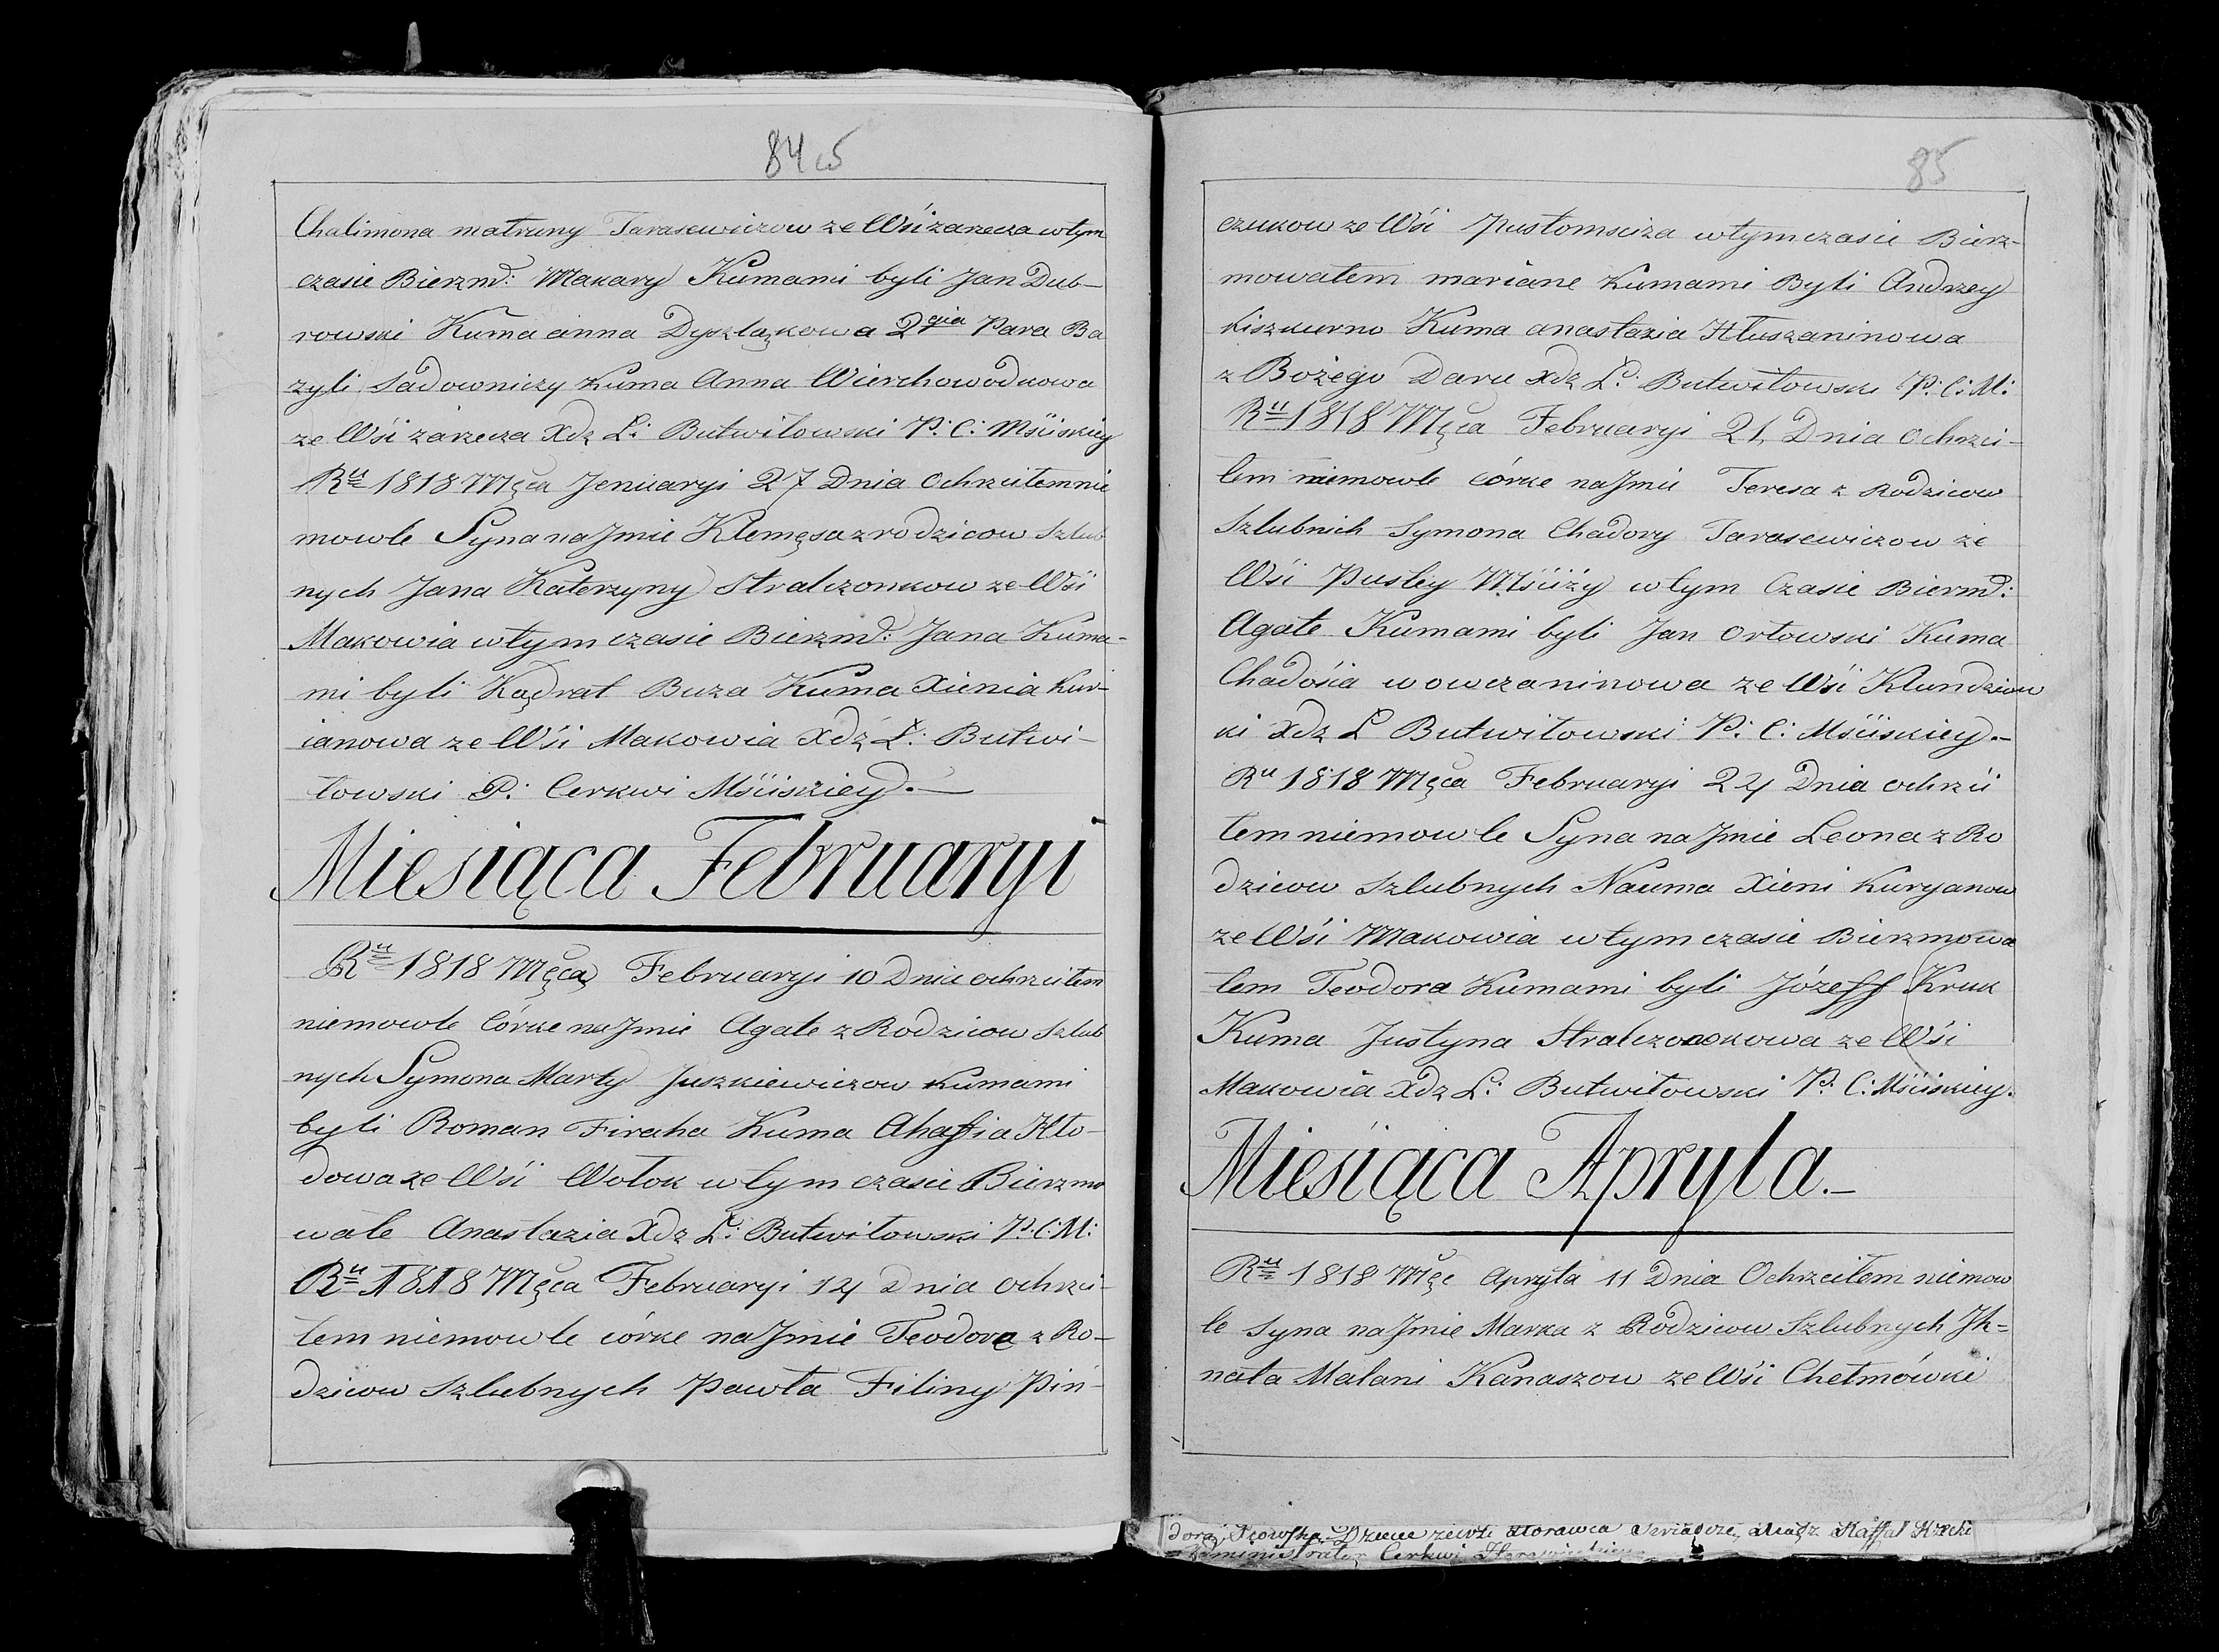 84 85
Chalimona matruny Tarasewiczow ze Wśi zarzecza wtym
czasie Bierzmd: Makary Kumami byli Jan Dub-
rowski Kuma anna Dyszlązkowa 2gia Para Ba
zyli Sadowniczy Kuma Anna Wierchowodkowa
ze Wśi zarzecza Xdz L: Butwiłowski P: C: Mśiiskiey
Ru 1818 Męca Jenuaryi 27 Dnia Ochrzciłem nie
mowle Syna na Jmie Klemęsa z rodzicow szlub
nych Jana Katerzyny Stralczonkow ze Wśi
Makowia wtym czasie Bierzmd: Jana Kuma-
mi byli Kądrat Buza Kuma Xienia Kur-
ianowa ze Wśi Makowia Xdz L: Butwi-
łowski P: Cerkwi Mśiiskiey.—
Miesiąca Februaryi
Ru 1818 Męca Februaryi 10 Dnia ochrzciłem
niemowle Córke na Jmie Agate z Rodzicow szlub
nych Symona Marty Juszkiewiczow Kumami
byli Roman Firaha Kuma Ahaffia Hło-
dowa ze Wśi Wołok wtym czasie Bierzmo
wałe Anastazia Xdz L: Butwiłowski P: C: M:
Ru 1818 Męca Februaryi 14 Dnia ochrzci-
łem niemowle córke na Jmie Teodore z Ro-
dzicow szlubnych Pawła Filiny Piń-
85
czukow ze Wśi Pustomsciza wtym czasie Bierz-
mowałem mariane Kumami Byli Andrzey
Kiszkurno Kuma anastazia Hłuszaninowa
z Bożego Daru Xdz L: Butwiłowski P: C: M:
Ru 1818 Męca Februaryi 21 Dnia Ochrzci-
łem niemowle córke na Jmie Teresa z Rodzicow
Szlubnich Symona Chadory Tarasewiczow ze
Wśi Pustey Mśiiży wtym Czasie Biermd:
Agate Kumami byli Jan Orłowski Kuma
Chadośia wowczaninowa ze Wśi Klundziow
ki Xdz L Butwiłowski P: C: Mśiiskiey.—
Ru 1818 Męca Februaryi 24 Dnia ochrzci
łem niemowle Syna na Jmie Leona z Ro
dzicow szlubnych Nauma Xieni Kuryanow
ze Wśi Makowia wtym czasie Bierzmowa
łem Teodora Kumami byli Józeff Kruk
Kuma Justyna Stralczonkowa ze Wśi
Makowia Xdz L: Butwiłowski P: C: Mśiiskiey.
Miesiąca Apryla.—
Ru 1818 Męc Apryla 11 Dnia Ochrzciłem niemow
le syna na Jmie Marka z Rodzicow Szlubnych Jh=
nata Malani Kanaszow ze Wśi Chełmówki
Cerkwi